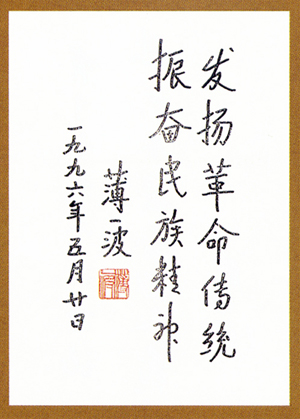 发扬革命传统
振奋民族精神
薄一波
一九九六年五月廿日